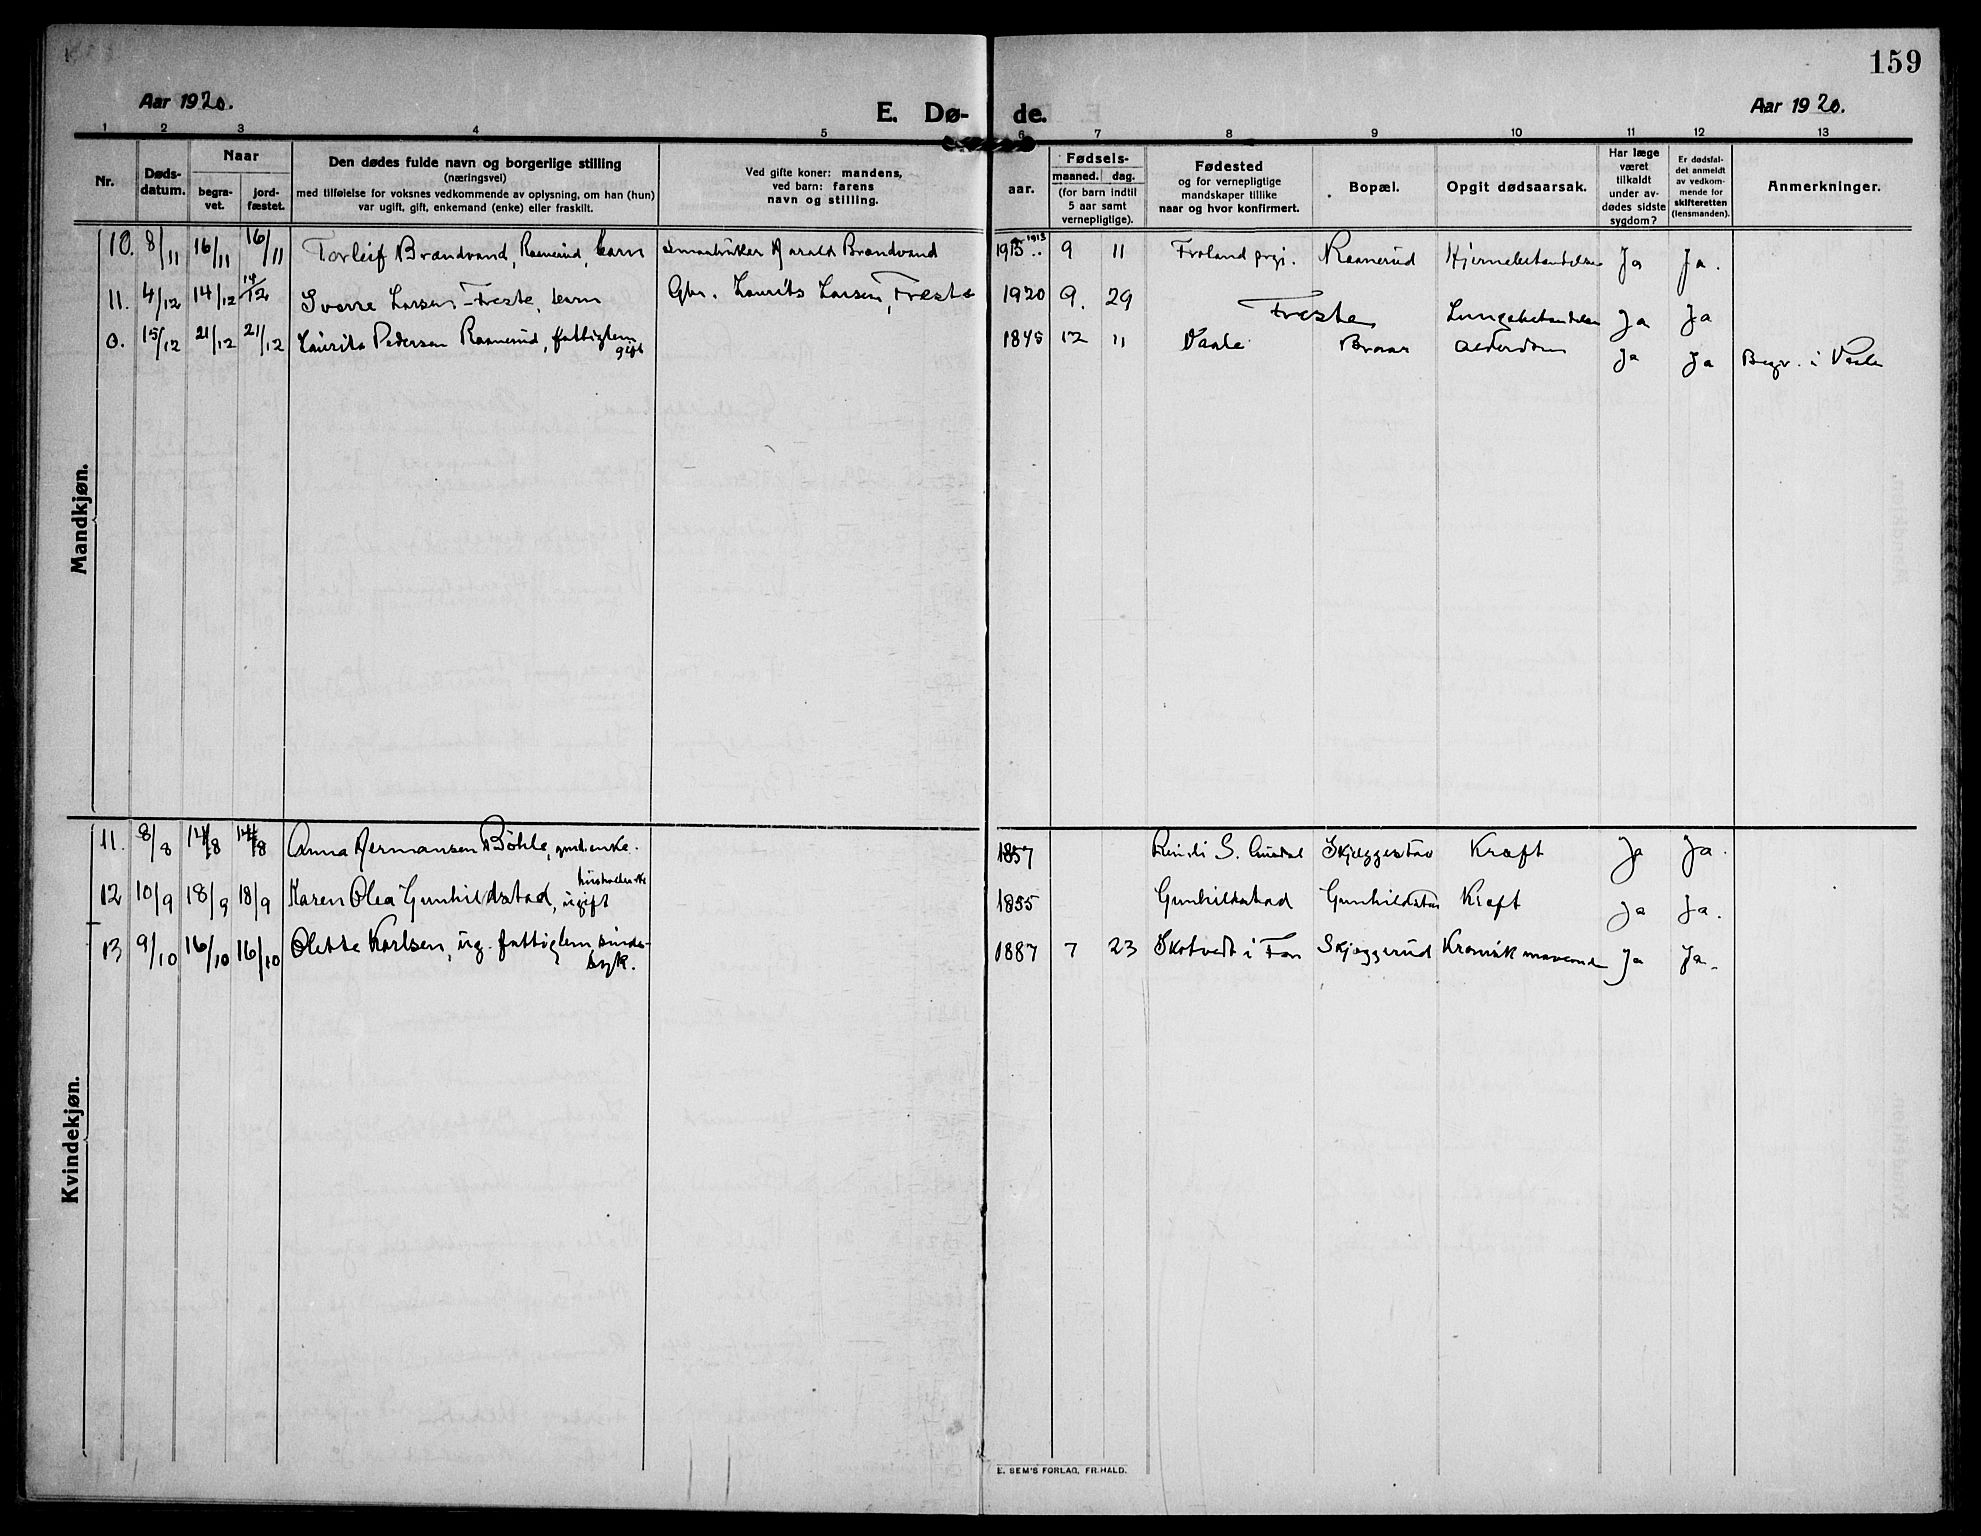 159
Aar 1920.
E. Dø- de.
Aar 1920.
1 2 3 4 5 6 7 8 9 10 11 12 13
Nr.
Døds-
datum.
Naar
begra-
vet.
jord-
fæstet.
Den dødes fulde navn og borgerlige stilling
(næringsvei)
med tilføielse for voksnes vedkommende av oplysning, om han (hun)
var ugift, gift, enkemand (enke) eller fraskilt.
Ved gifte koner: mandens,
ved barn: farens
navn og stilling.
Fødsels-
aar.
maaned.
dag.
(for barn indtil
5 aar samt
vernepligtige).
Fødested
og for vernepligtige
mandskaper tillike
naar og hvor konfirmert.
Bopæl.
Opgit dødsaarsak.
Har læge
været
tilkaldt
under av-
dødes sidste
sygdom?
Er dødsfal-
det anmeldt
av vedkom-
mende for
skifteretten
(lensmanden).
Anmerkninger.
Mandkjøn.
10. 8/11 16/11 16/11 Torleif Brændvand, Raanerud, barn Smaabruker Harald Brændvand 1915 1913 9 11 Froland prgj. Raanerud Hjernebetændelse Ja Ja.
11. 4/12 14/12 14/12 Sverre Larsen Freste, barn Gbr. Laurits Larsen, Freste 1920 9. 29 Freste Lungebetændelse Ja Ja
0. 15/12 21/12 21/12 Laurits Pedersen Raanerud, fattiglem 1845 12 11 Vaale Braar Alderdom Ja Ja Begr. i Vaale
gift
Kvindekjøn.
11. 8/8 14/8 14/8 Anna Hermansen Bøhle, enke. 1857 S. Skjeggestad Kræft Ja Ja.
12 10/9 18/9 18/9 Karen Olea Gunhildstad, ugift 1855 Gunhildstad Gunhildstad Kræft Ja Ja.
13 9/10 16/10 16/10 Olette Karlsen, ug. fattiglem sinds- 1887 7 23 Skotvedt i Fon Skjeggerud Kronisk Ja Ja.
syk.
E. SEM'S FORLAG, FR.HALD.